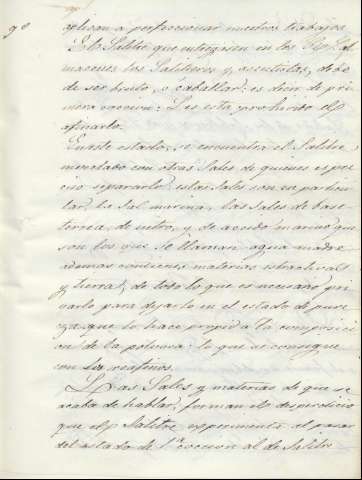 aplican a perfeccionar nuestros trabajos.
El Salitre que entreguen en los al
macenes los Salitreros y asentistas, debe
de ser bruto, o caballar: es decir de pri
mera coccion: Les esta prohibido el
afinarlo.
En este estado, se encuentra el Salitre
mesclado con otras Sales de quienes es pre
ciso separarlo; estas Sales son en particu
lar, la Sal marina, las Sales de base
terrea, de nitro, y de acido marino que
son los que se llaman agua madre
ademas contiene materias estractivas
y tierra; de todo lo que es necesario pri
varlo para dejarlo en el estado de pure
za que lo hace propio a la composicion
de la polvora: lo que se consigue
con los reafinos.
Las Sales y materias de que se
acaba de hablar, forman el desperdicio
que el Salitre esperimenta al pasar
del estado de 1ª coccion al de Salitre